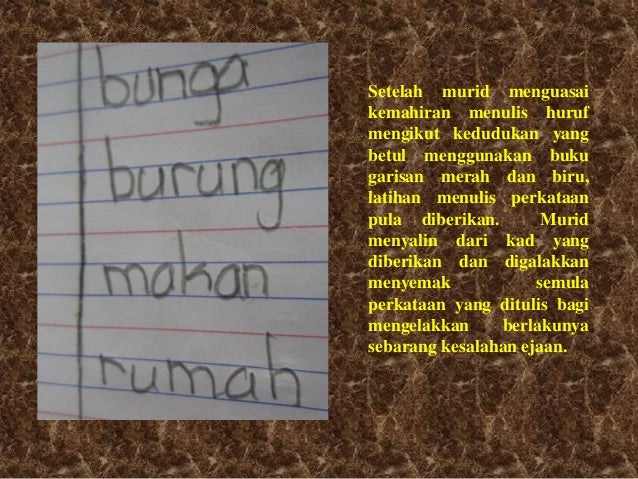 bunga
burung
makan
rumah
Setelah murid menguasai
kemahiran menulis huruf
mengikut kedudukan yang
betul menggunakan buku
garisan merah dan biru,
latihan menulis perkataan
pula diberikan. Murid
menyalin dari kad yang
diberikan dan digalakkan
menyemak semula
perkataan yang ditulis bagi
mengelakkan berlakunya
sebarang kesalahan ejaan.